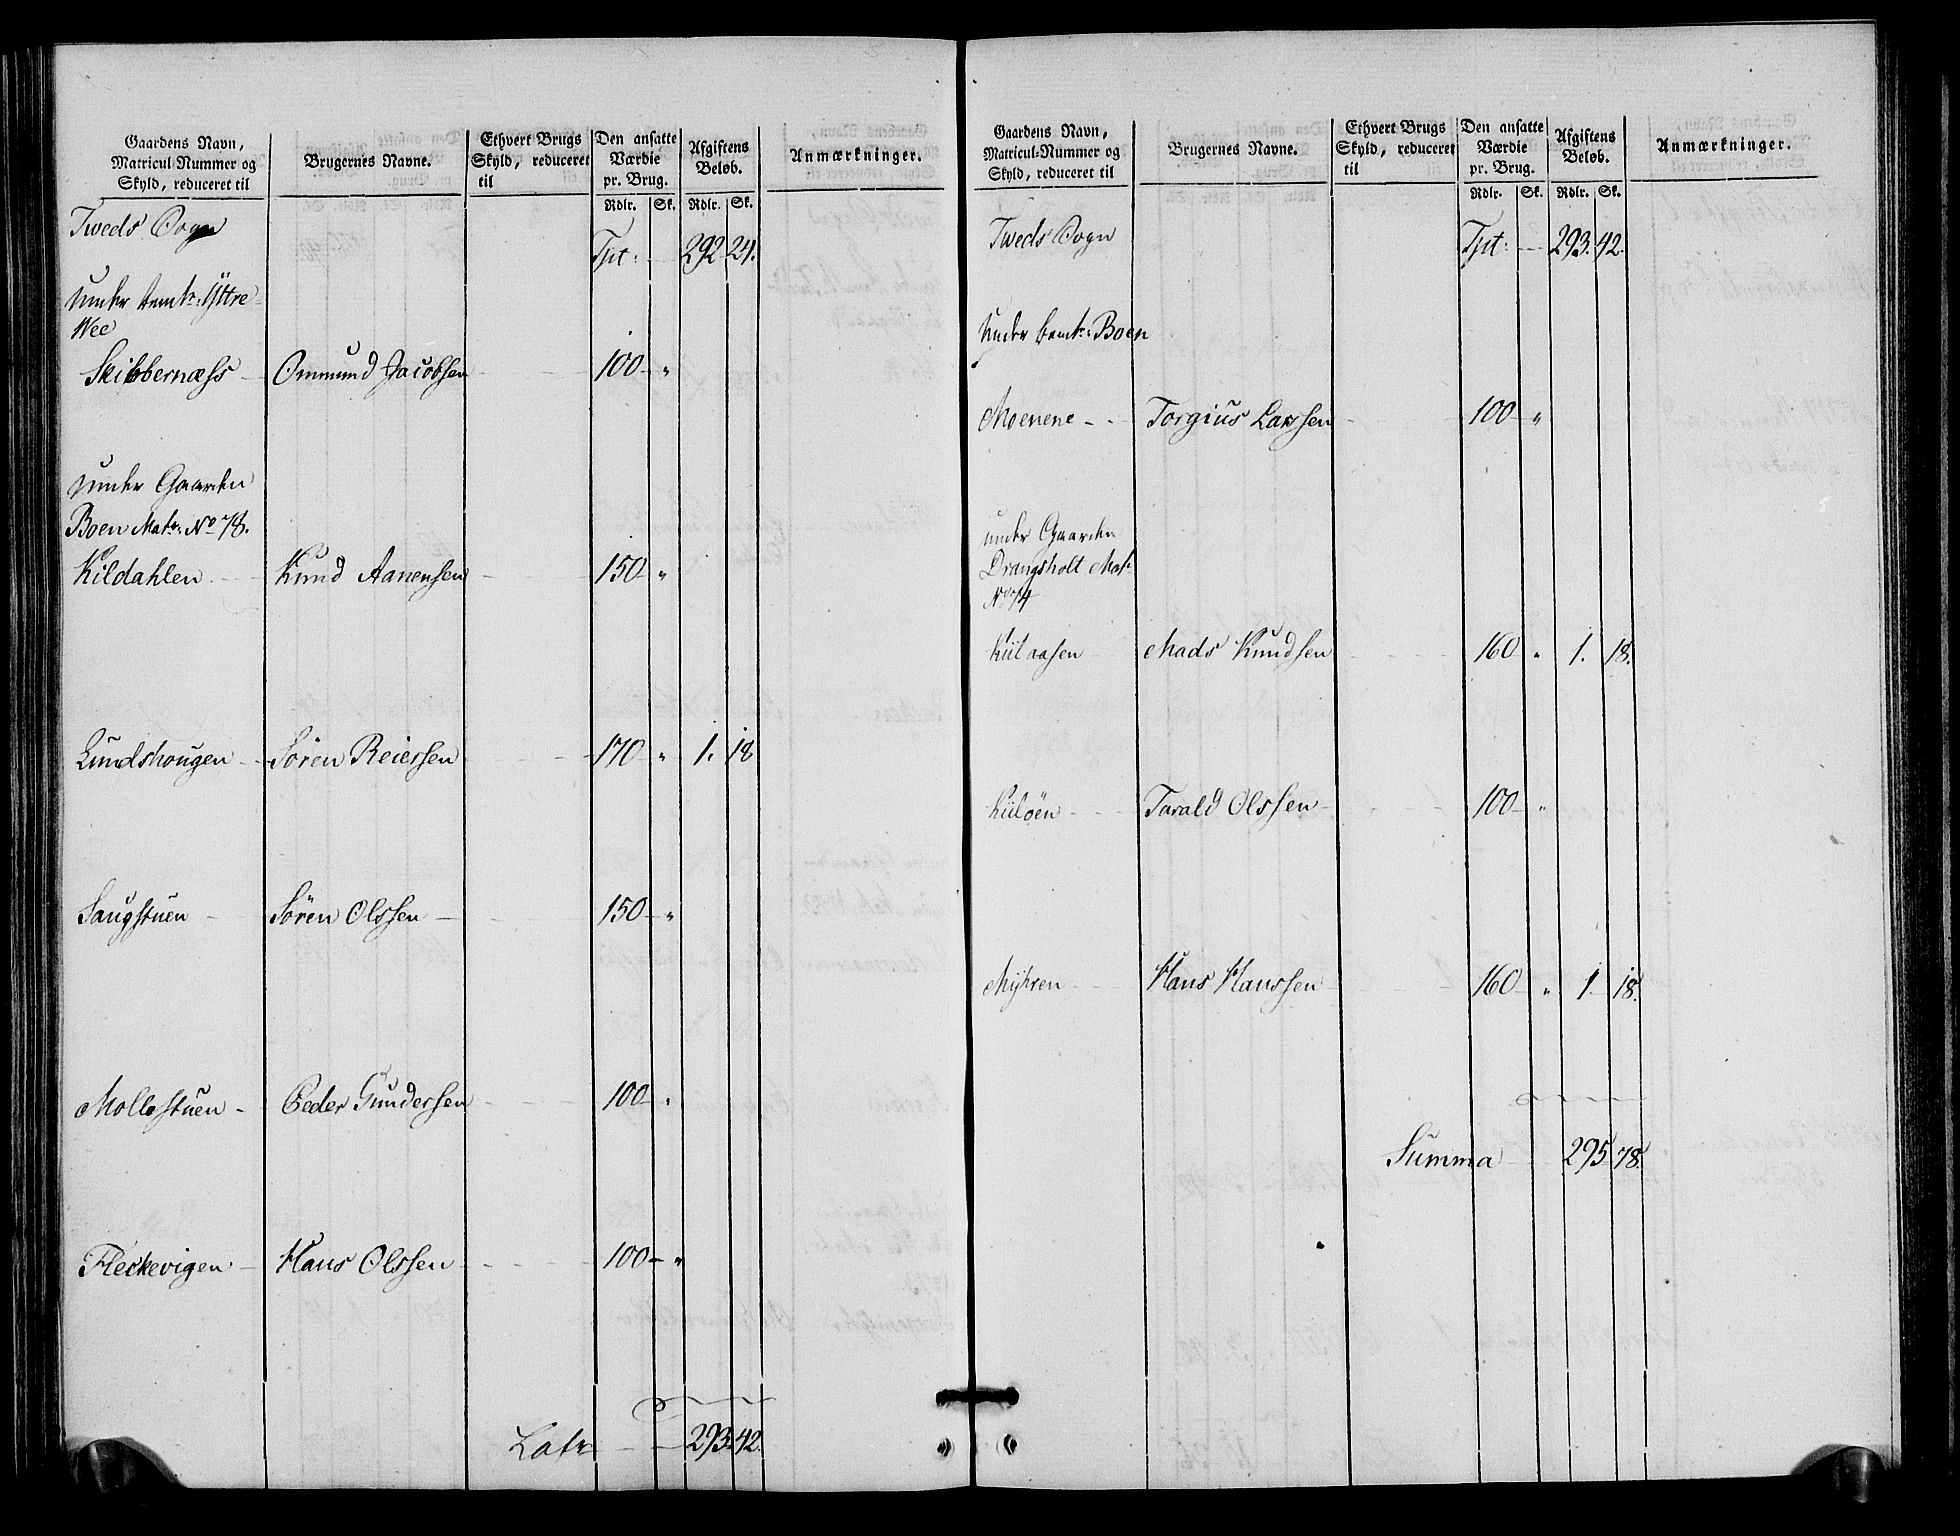 Gaardens Navn,
Matricul-Nummer og
Skyld, reduceret til
Brugernes Navne.
Ethvert Brugs
Skyld, reduceret
til
Den ansatte
Værdie
pr. Brug.
Afgiftens
Beløb.
Anmærkninger.
Rdlr. Sk. Rdlr. Sk.
Tweds Sogn
Tpt: 292 24.
under
Yttre
Wee
Skibbernæss Ommund Jacobsen 100 "
under Gaarden
Boen Matr: No 78.
Kildahlen Knud Aanensen 150 "
Lundshougen Sören Reiersen 170 " 1. 18
Saugstuen Sören Olssen 150 "
Mollestuen Peder Gundersen 100 "
Fleckevigen Hans Olssen 100 "
Latr 293 42.
Gaardens Navn,
Matricul-Nummer og
Skyld, reduceret til
Brugernes Navne.
Ethvert Brugs
Skyld, reduceret
til
Den ansatte
Værdie
pr. Brug.
Afgiftens
Beløb.
Anmærkninger.
Rdlr. Sk. Rdlr. Sk.
Tweds Sogn
Tpt: 293. 42.
under bemte: Boen
Moenene Torgius Larssen 100 "
under Gaarden
Drangsholt Matr
No 74
Kiilaasen Mads Knudsen 160 " 1. 18.
Kiiløen Tarald Olssen 100 "
Myhren Hans Hanssen 160 " 1. 18.
Summa 295 78.